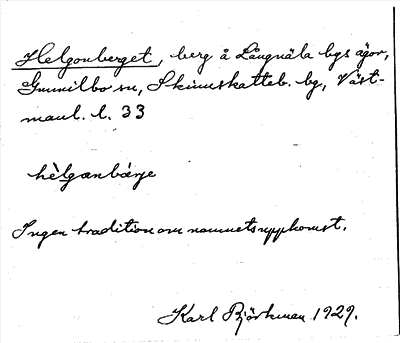 Helgonberget, berg å Långnäla bys ägor,
Gunnilbo sn, Skinnskatteb. bg, Väst-
manl. l. 33
hèlgo̲nbárje
Ingen tradition om namnets uppkomst.
Karl Björkman 1929.